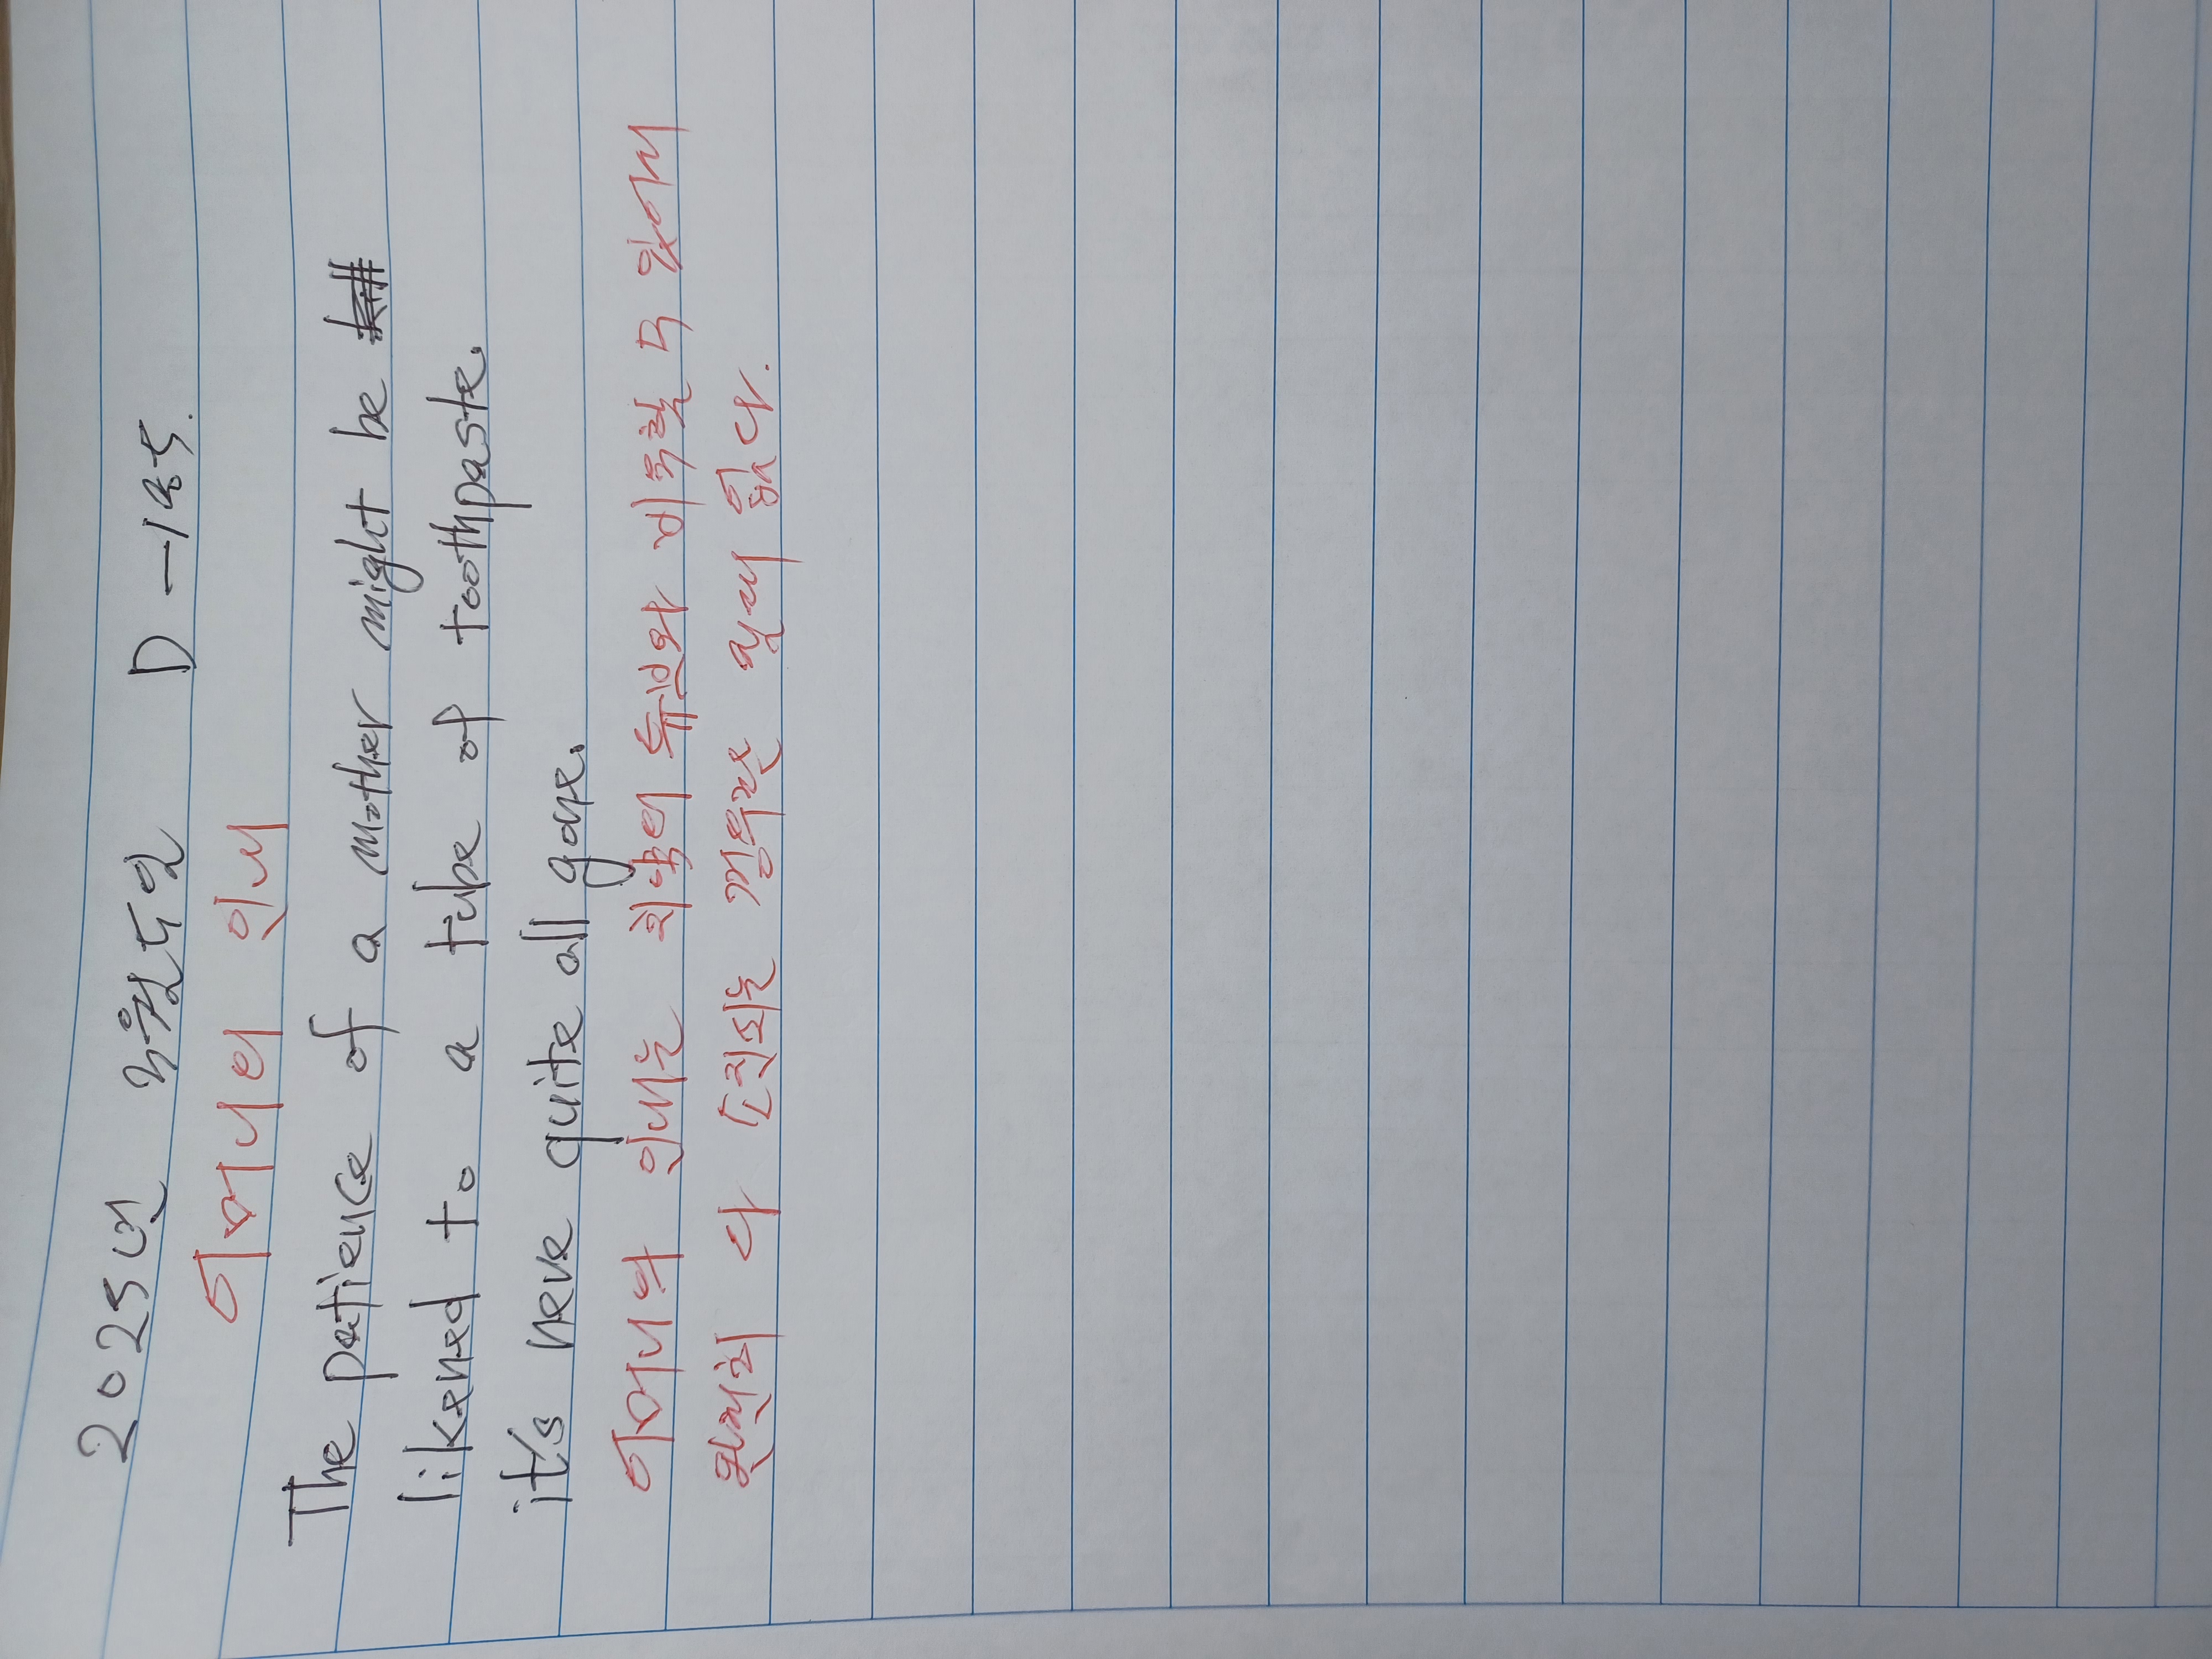 2025년 D-185.
어머니의 인내
The patience of a mother might be
likened to a tube of toothpaste.
it's neve quite all gone.
어머니의 인내는 치약의 튜브와 비유할 수
완전히 다 소진되는 경우란 없다.